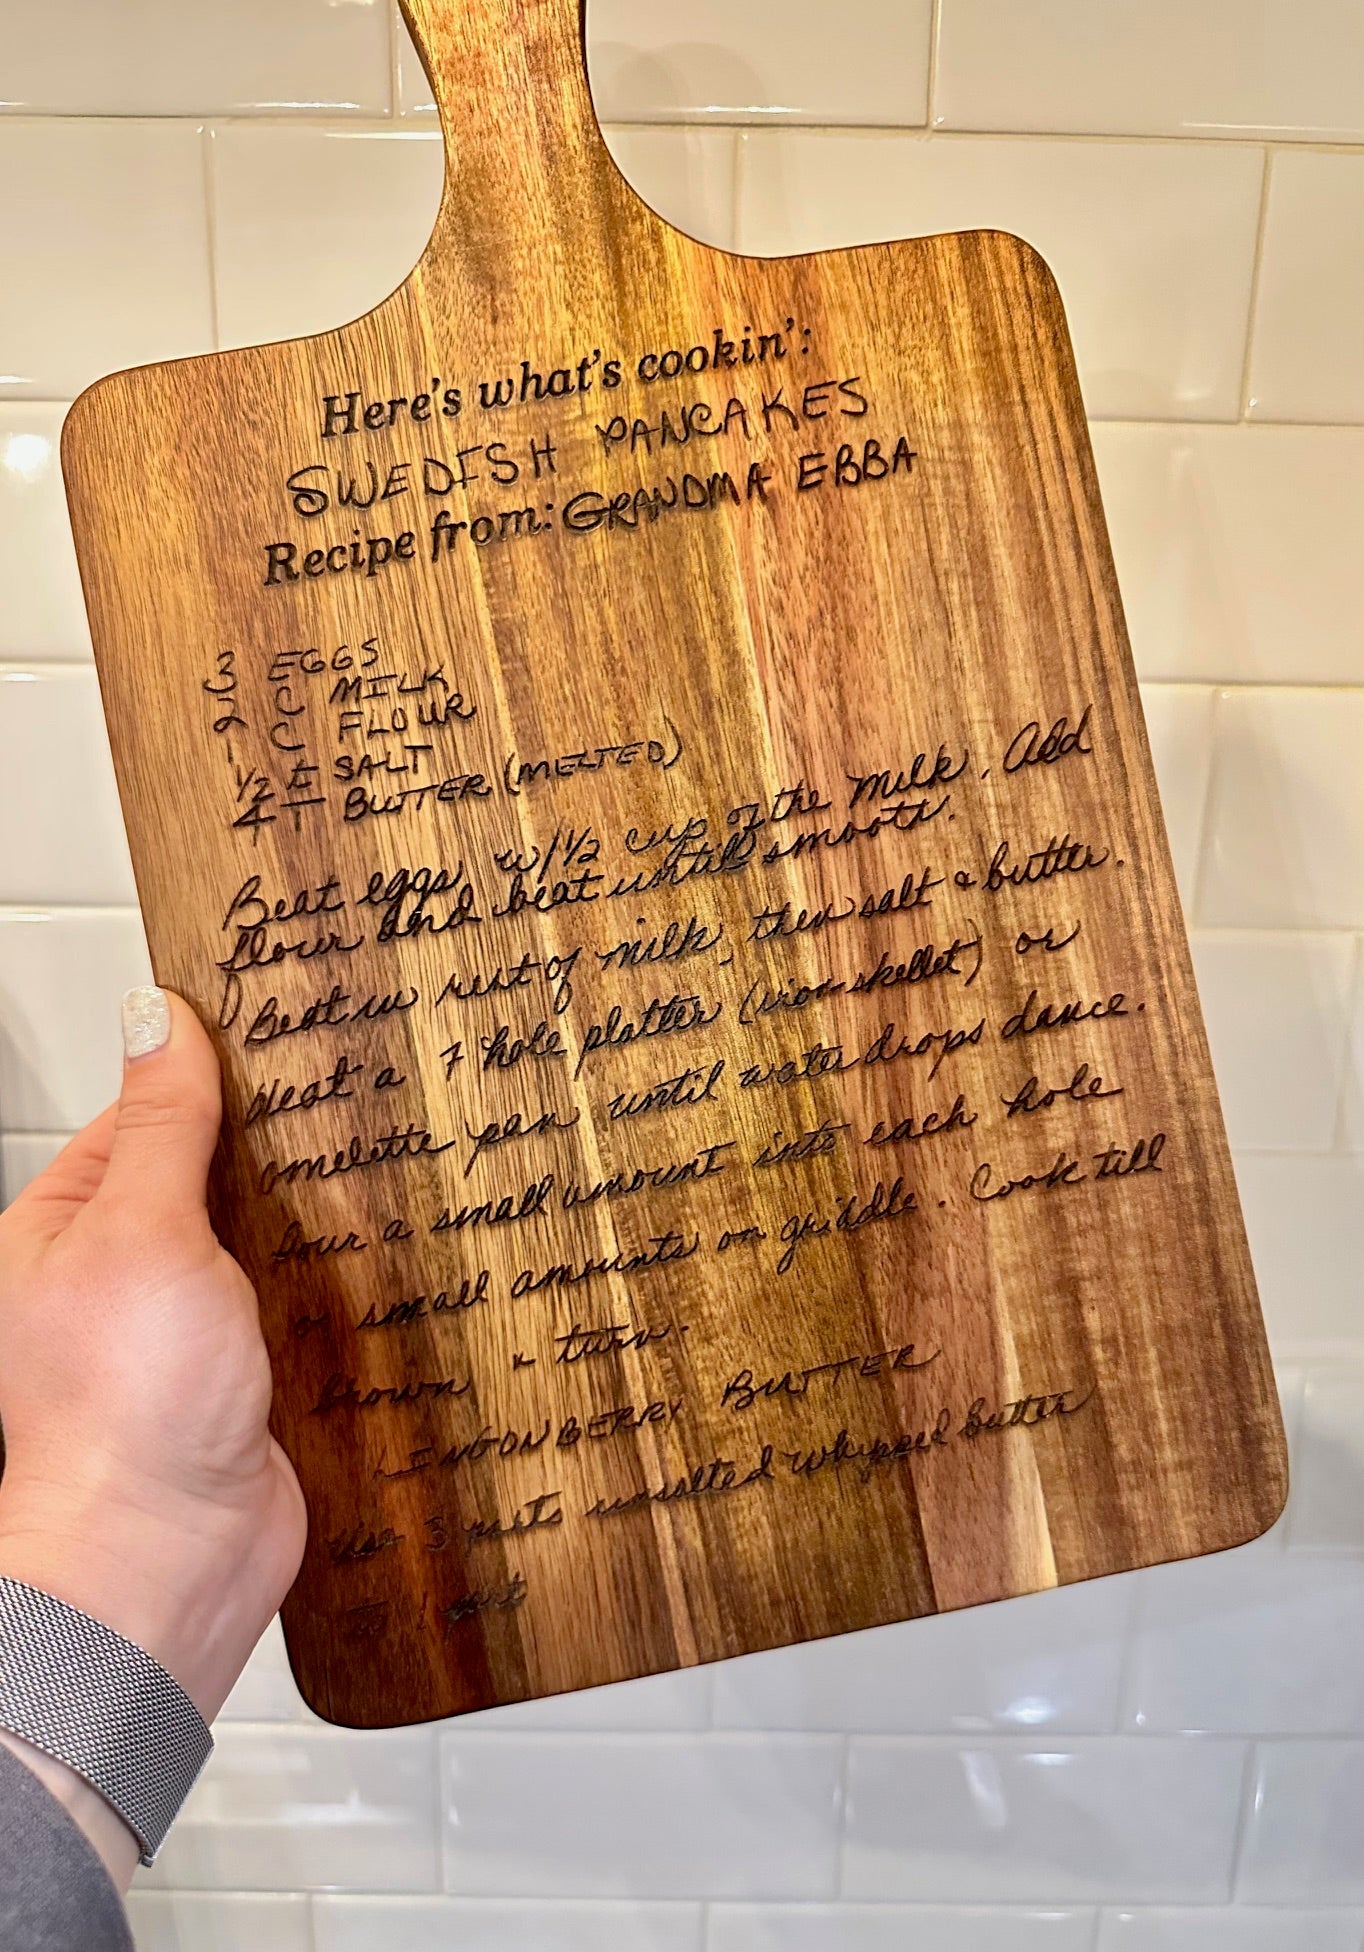 Here's what's cookin':
SWEDISH PANCAKES
Recipe from: GRANDMA EBBA
3 EGGS
2 C MILK
1 C FLOUR
1/2 t SALT
4 T BUTTER (MELTED)
Beat eggs w/ 1/2 cup of the milk. Add
flour and beat until smooth.
Beat in rest of milk, then salt & butter.
Heat a 7 hole platter (iron skellet) or
omelette pan until water drops dance.
Pour a small amount into each hole
or small amounts on griddle. Cook till
brown & turn.
LINGONBERRY BUTTER
Use 3 parts unsalted whipped butter
to 1 part